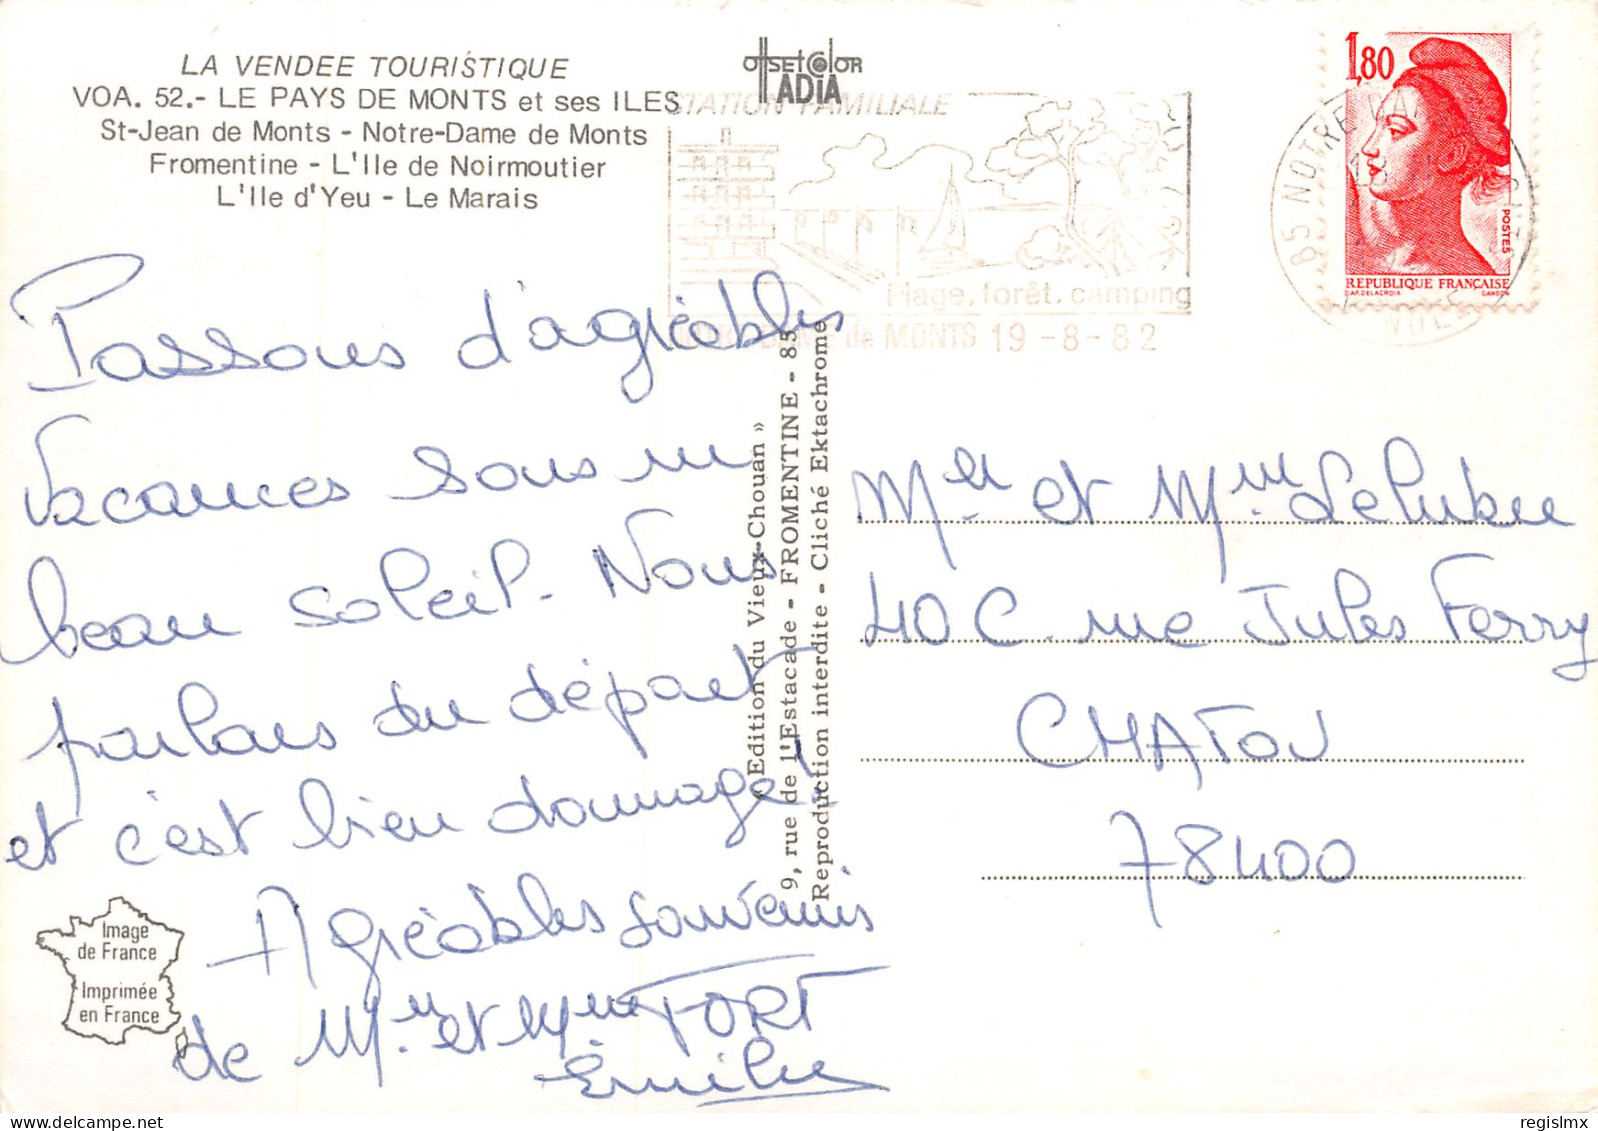 LA VENDEE TOURISTIQUE
VOA. 52.- LE PAYS DE MONTS et ses ILES
St-Jean de Monts - Notre-Dame de Monts
Fromentine - L'Ile de Noirmoutier
L'Ile d'Yeu - Le Marais
OFFSET COLOR
ADIA
STATION FAMILIALE
Plage, forêt, camping
NOTRE DAME de MONTS 19-8-82
1,80
POSTES
REPUBLIQUE FRANÇAISE
D'AP. DELACROIX GANDON
85 NOTRE DAME
Passons d'agréables
vacances sous un
beau soleil. Nous
parlons du départ
et c'est bien dommage!
Agréables souvenirs
de Mr et Mme FORT
Émilie
«Edition du Vieux-Chouan»
9, rue de l'Estacade - FROMENTINE - 85
Reproduction interdite - Cliché Ektachrome
Mr et Mme
40 C rue Jules Ferry
CHATOU
78400
Image
de France
Imprimée
en France
regislmx